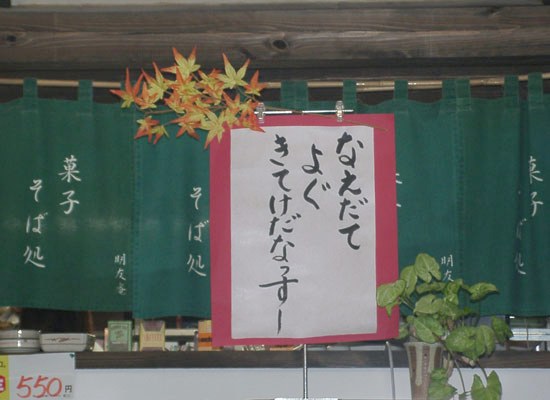 なえだて
よぐ
きてけだなっすー
菓子
そば処
明友庵
そば処
菓子
そば処
明友庵
550円